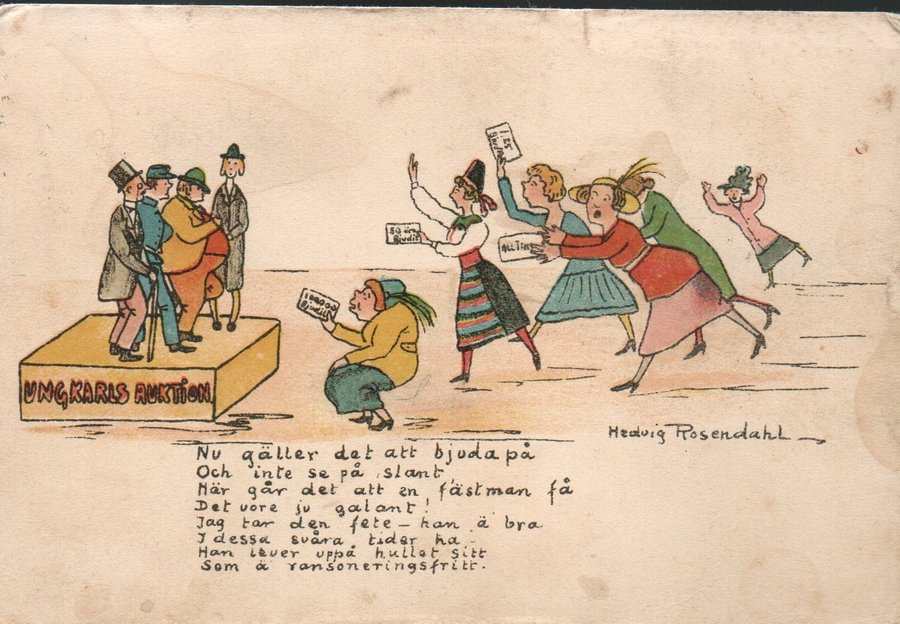 1.25 Bjudit
50 öre Bjudit
ALLTING
10000 Bjudit
UNGKARLS AUKTION
Hedvig Rosendahl
Nu gäller det att bjuda på
Och inte se på slant,
När går det att en fästman få
Det vore ju galant!
Jag tar den fete – han ä bra
I dessa svåra tider ha –
Han lever uppå hullet sitt
Som ä ransoneringsfritt.